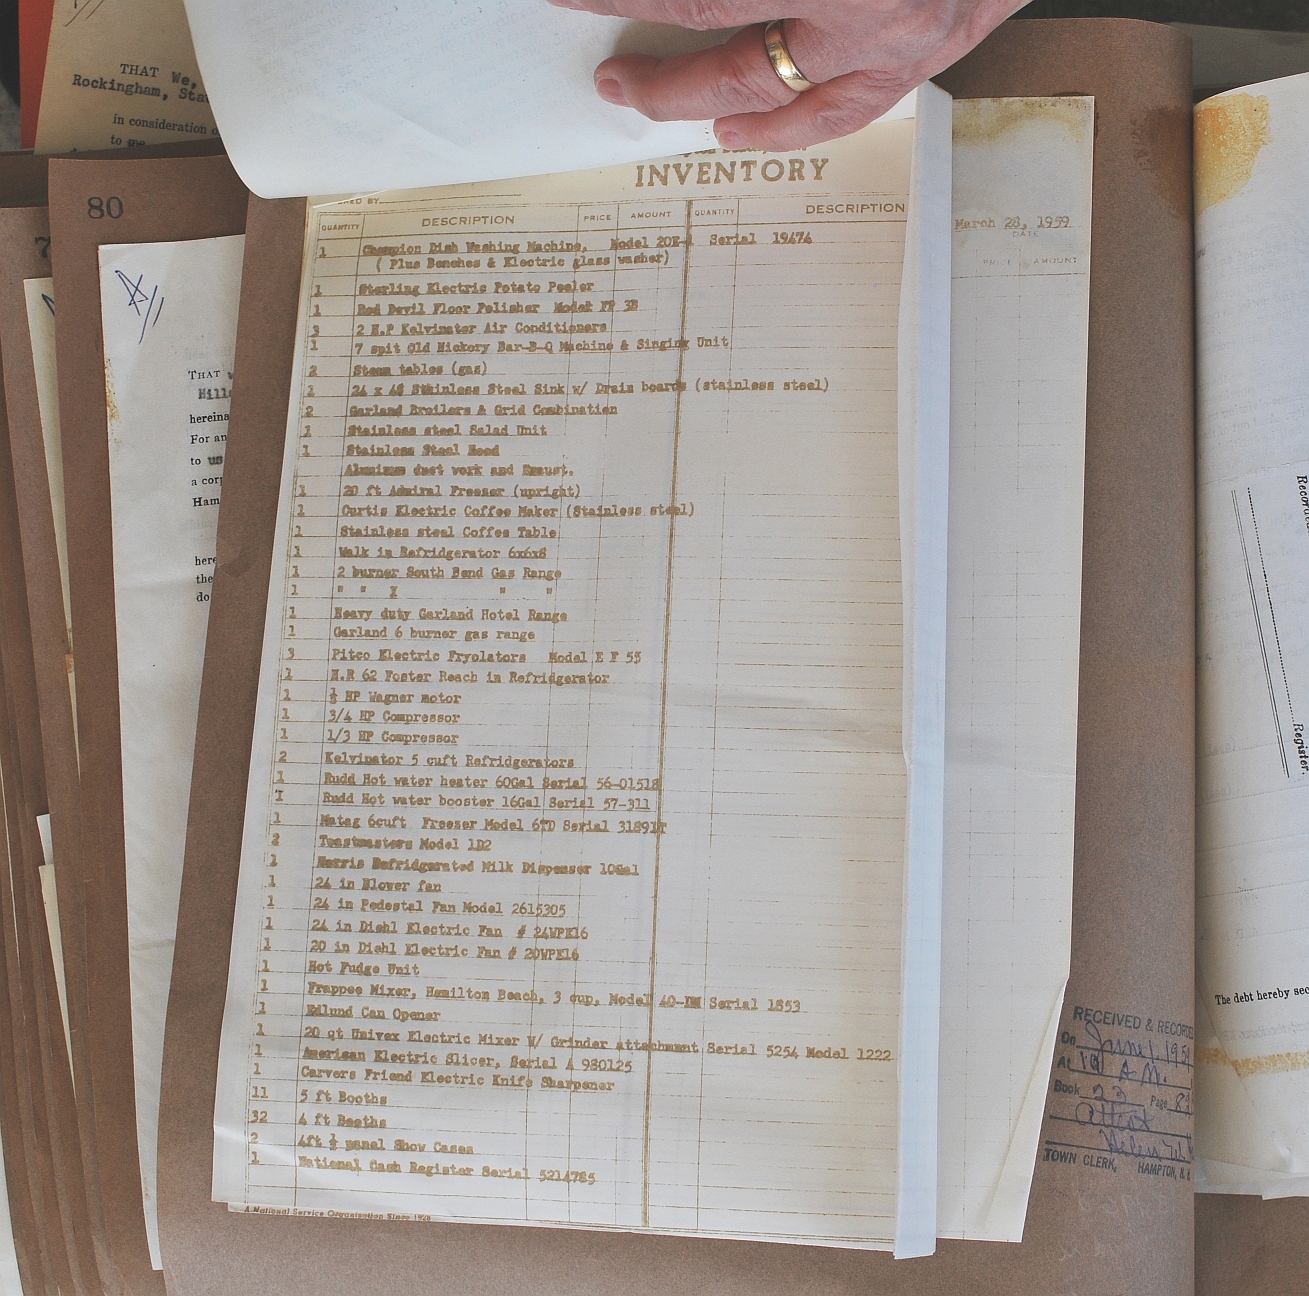 THAT We,
Rockingham, Sta
in consideration o
to me
80
7
THAT
Hills
hereina
For an
to us
a corp
Ham
here
the
do
INVENTORY
ED BY
March 28, 1959
DATE
QUANTITY DESCRIPTION PRICE AMOUNT QUANTITY DESCRIPTION PRICE AMOUNT
1 Champion Dish Washing Machine, Model 20E- Serial 19474
( Plus Benches & Electric glass washer)
1 Sterling Electric Potato Peeler
1 Red Devil Floor Polisher Model FP 3B
3 2 H.P Kelvinator Air Conditioners
1 7 spit Old Hickory Bar-B-Q Machine & Singing Unit
2 Steam tables (gas)
1 24 x 48 Stainless Steel Sink w/ Drain boards (stainless steel)
2 Garland Broilers & Grid Combination
1 Stainless steel Salad Unit
1 Stainless Steel Hood
Aluminum duct work and Exaust.
1 20 ft Admiral Freezer (upright)
1 Curtis Electric Coffee Maker (Stainless steel)
1 Stainless steel Coffee Table
1 Walk in Refridgerator 6x6x8
1 2 burner South Bend Gas Range
1 " " " "
1 Heavy duty Garland Hotel Range
1 Garland 6 burner gas range
3 Pitco Electric Fryolators Model E F 55
1 N.R 62 Foster Reach in Refridgerator
1 HP Wagner motor
1 3/4 HP Compressor
1 1/3 HP Compressor
2 Kelvinator 5 cuft Refridgerators
1 Rudd Hot water heater 60Gal Serial 56-01518
1 Rudd Hot water booster 16Gal Serial 57-311
1 Matag 6cuft Freezer Model 6TD Serial 31891T
2 Toastmasters Model 1D2
1 Norris Refridgerated Milk Dispenser 10Gal
1 24 in Blower fan
1 24 in Pedestal Fan Model 2615305
1 24 in Diehl Electric Fan # 24WPE16
1 20 in Diehl Electric Fan # 20WPE16
1 Hot Fudge Unit
1 Frappee Mixer, Hamilton Beach, 3 cup, Model 40-DM Serial 1853
1 Edlund Can Opener
1 20 qt Univex Electric Mixer W/ Grinder attachment Serial 5254 Model 1222
1 American Electric Slicer, Serial A 980125
1 Carvers Friend Electric Knife Sharpener
11 5 ft Booths
32 4 ft Booths
2 4ft ½ panel Show Cases
1 National Cash Register Serial 5214785
A National Service Organization Since
RECEIVED & RECORDE
On June 1, 195
At 10 A M.
Book 23 Page 8
Attest
Helen W
TOWN CLERK, HAMPTON, N.
Recorded
Register.
The debt hereby sec